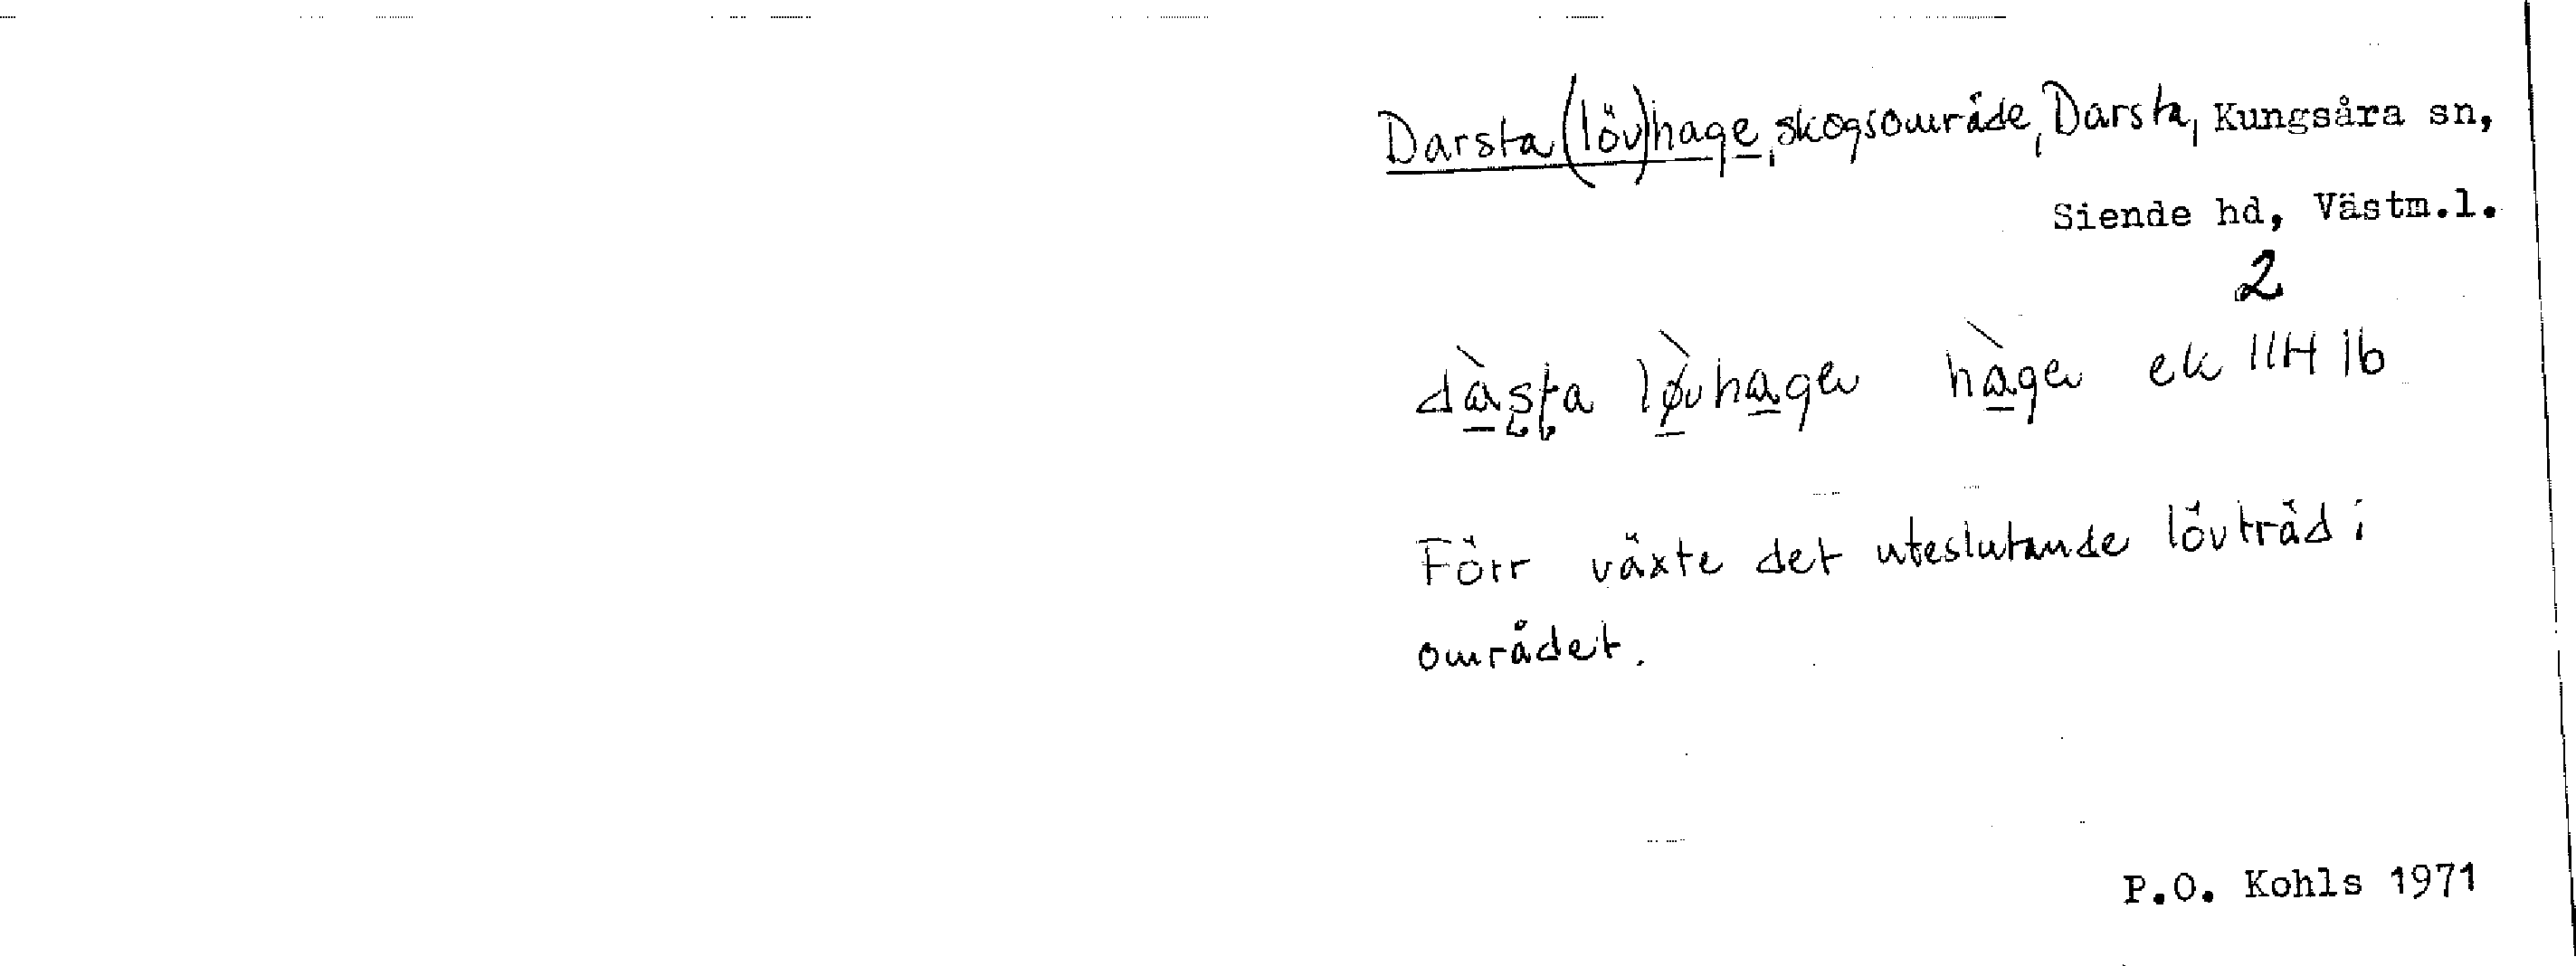 Darsta (löv)hage, skogsområde, Darsta, Kungsåra sn,
Siende hd, Västm.l.
2
dàsta løvhagen hàgen ek 11H 1b
Förr växte det uteslutande lövträd i
området.
P.O. Kohls 1971